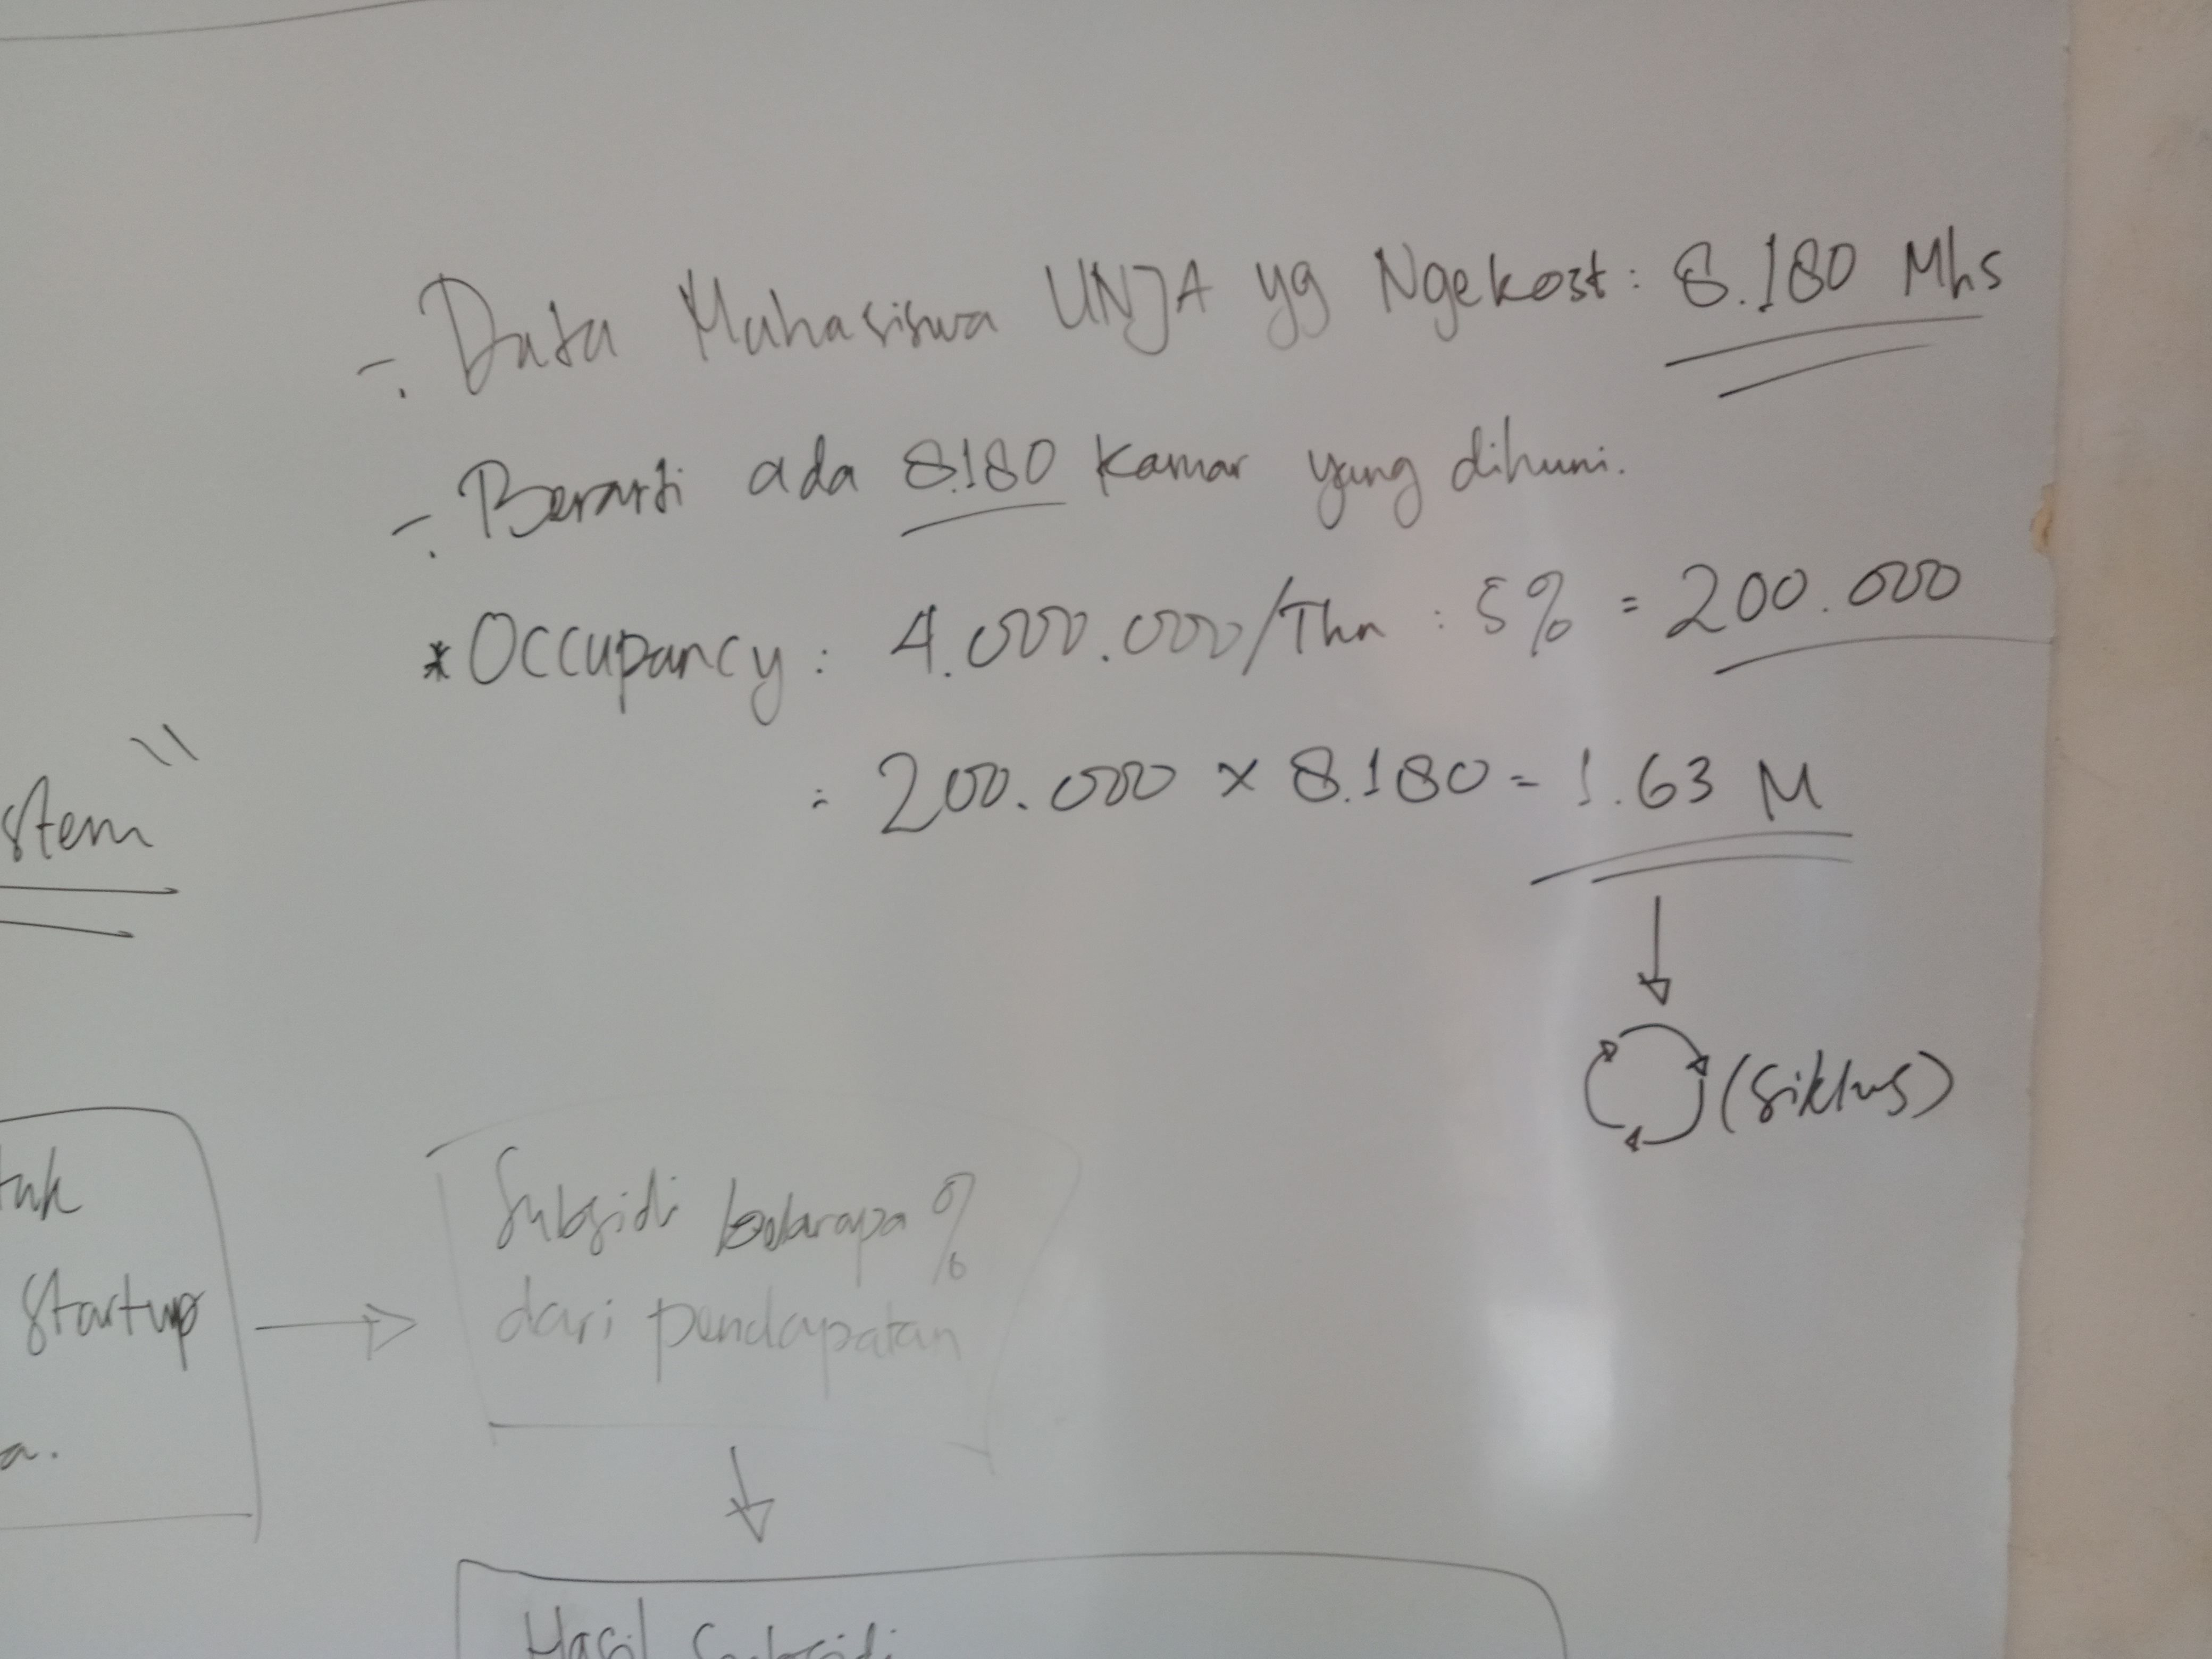 -. Data Mahasiswa UNJA yg Ngekost : 8.180 Mhs
-. Berarti ada 8.180 Kamar yang dihuni.
* Occupancy : 4.000.000/Thn : 5% = 200.000
= 200.000 x 8.180 = 1.63 M
(Siklus)
stem"
tuk
Startup
a.
Subsidi beberapa %
dari pendapatan
Hasil Subsidi